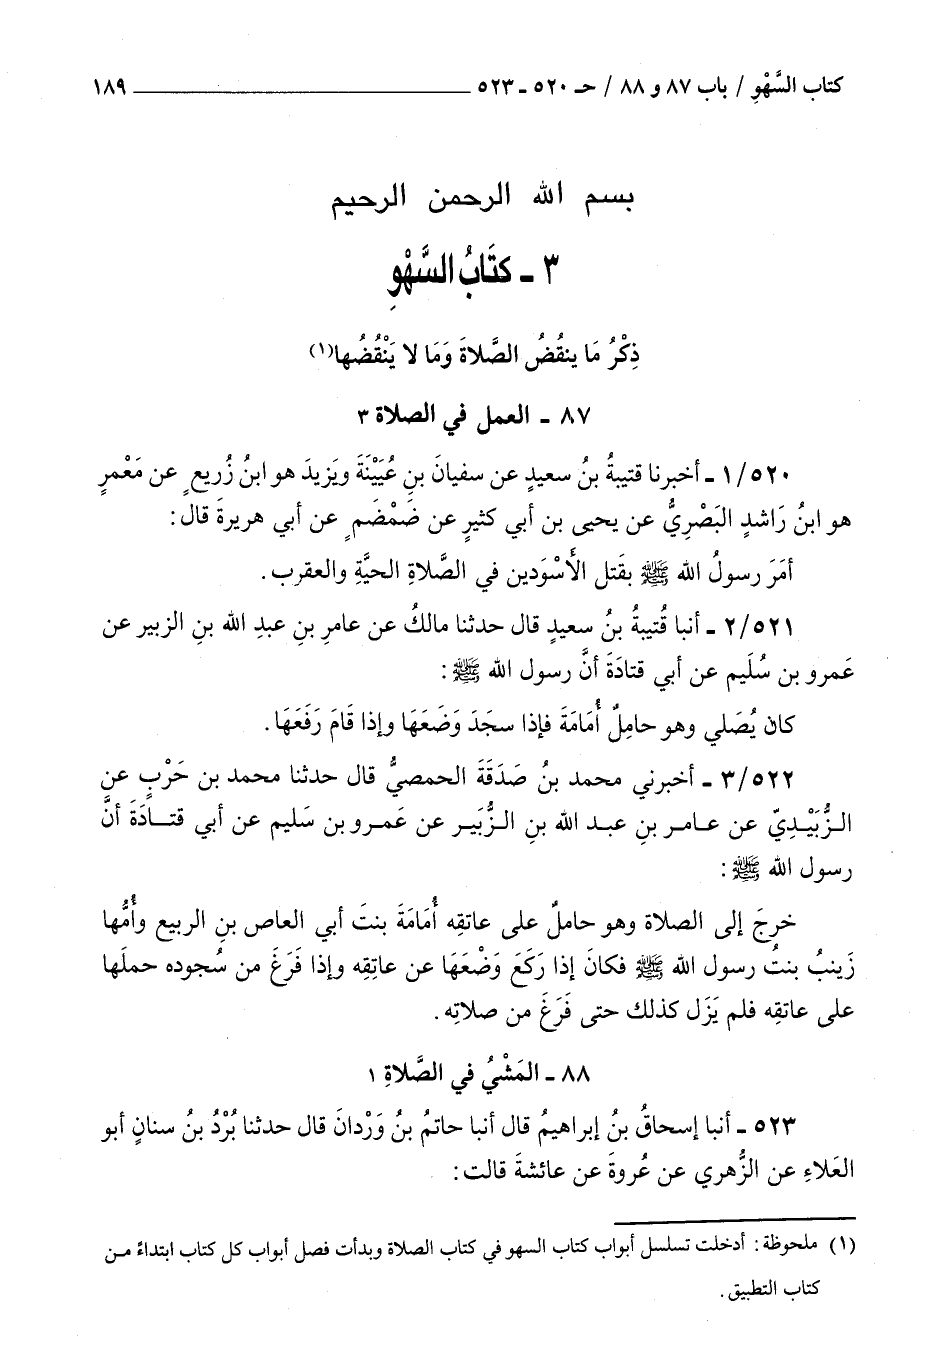 كتاب السَّهْوِ / باب ٨٧ و ٨٨ / حـ ٥٢٠ ـ ٥٢٣ ١٨٩
بسم الله الرحمن الرحيم
٣ ـ كتَابُ السَّهْوِ
ذِكْرُ مَا ينقُضُ الصَّلاةَ وَمَا لا يَنْقُضُها(١)
٨٧ ـ العمل في الصلاة ٣
١/٥٢٠ ـ أخبرنا قتيبةُ بنُ سعيدٍ عن سفيانَ بنِ عُيَيْنَةَ ويَزيدَ هو ابنُ زُريعٍ عن مَعْمرٍ
هو ابنُ رَاشدٍ البَصْرِيُّ عن يحيى بن أبي كثيرٍ عن ضَمْضَمٍ عن أبي هريرةَ قال:
أمَرَ رسولُ الله ﷺ بقَتلِ الأَسْوَدين في الصَّلاةِ الحيَّةِ والعقربِ.
٢/٥٢١ ـ أنبا قُتيبةُ بنُ سعيدٍ قال حدثنا مالكُ عن عامرِ بنِ عبدِ الله بنِ الزبير عن
عَمرو بن سُلَيم عن أبي قتادَةَ أنَّ رسولَ الله ﷺ:
كان يُصَلي وهو حامِلٌ أُمَامَةَ فإذا سجَدَ وَضَعَهَا وإذا قَامَ رَفَعَهَا.
٣/٥٢٢ ـ أخبرني محمد بنُ صَدَقَةَ الحمصيُّ قال حدثنا محمد بن حَرْبٍ عن
الزُّبَيْدِيّ عن عامر بنِ عبد الله بنِ الزُّبَير عن عَمرو بن سَليم عن أبي قتادَةَ أنَّ
رسول الله ﷺ:
خرجَ إلى الصلاة وهو حاملٌ على عاتقه أُمَامَةَ بنتَ أبي العاص بنِ الربيع وأُمُّها
زَينبُ بنتُ رسول الله ﷺ فكانَ إذا رَكَعَ وَضْعَهَا عن عاتِقِه وإذا فَرَغَ من سُجوده حملَها
على عاتقِه فلم يَزَل كذلك حتى فَرَغَ من صلاتِه.
٨٨ ـ المَشْيُ في الصَّلاةِ ١
٥٢٣ ـ أنبا إسحاقُ بنُ إبراهيمُ قال أنبا حاتمُ بنُ وَرْدانَ قال حدثنا بُرْدُ بنُ سنانٍ أبو
العَلاءِ عن الزُّهري عن عُروةَ عن عائشةَ قالت:
(١) ملحوظة: أدخلت تسلسل أبواب كتاب السهو في كتاب الصلاة وبدأت فصل أبواب كل كتاب ابتداءً من
كتاب التطبيق.